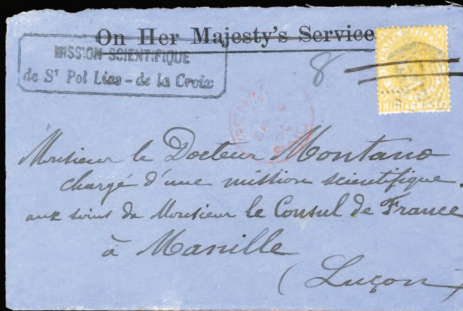 On Her Majesty's Service
MISSION SCIENTIFIQUE
de St Pol Lias - de la Croix
8
Monsieur le Docteur Montano
chargé d'une mission scientifique.
aux soins de Monsieur le Consul de France
à Manille
(Luçon)